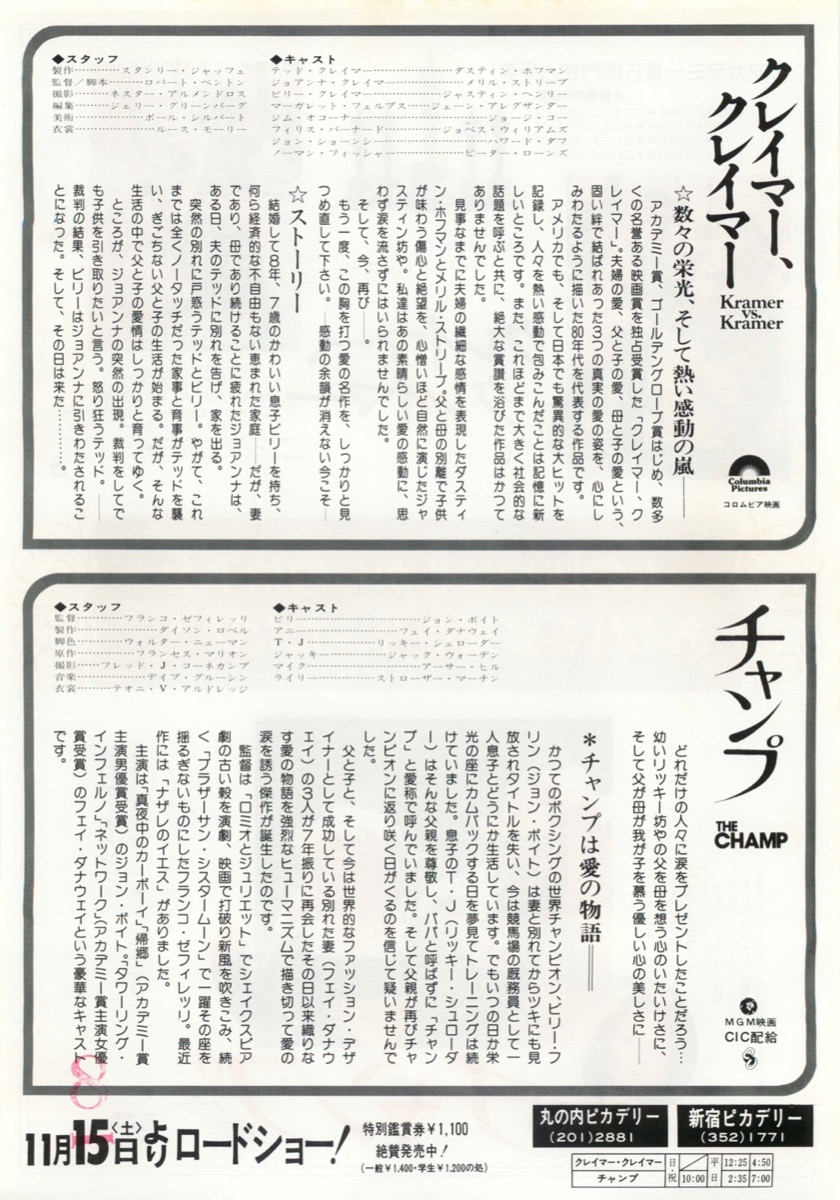 クレイマー、
クレイマー
Kramer
vs.
Kramer
Columbia
Pictures
コロムビア映画
◆キャスト
テッド・クレイマー………ダスティン・ホフマン
ジョアンナ・クレイマー………メリル・ストリープ
ビリー・クレイマー………ジャスティン・ヘンリー
マーガレット・フェルプス………ジェーン・アレグザンダー
ジム・オコーナー………ジョージ・コー
フィリス・バーナード………ジョベス・ウィリアムズ
ジョン・ショーンシー………ハワード・ダフ
ノーマン・フィッシャー………ピーター・ローンズ
◆スタッフ
製作………スタンリー・ジャッフェ
監督／脚本………ロバート・ベントン
撮影………ネスター・アルメンドロス
編集………ジェリー・グリーンバーグ
美術………ポール・シルバート
衣裳………ルース・モーリー
☆数々の栄光、そして熱い感動の嵐――
アカデミー賞、ゴールデングローブ賞はじめ、数多
くの名誉ある映画賞を独占受賞した「クレイマー、ク
レイマー」。夫婦の愛、父と子の愛、母と子の愛という、
固い絆で結ばれあった3つの真実の愛の姿を、心にし
みわたるように描いた80年代を代表する作品です。
アメリカでも、そして日本でも驚異的な大ヒットを
記録し、人々を熱い感動で包みこんだことは記憶に新
しいところです。また、これほどまで大きく社会的な
話題を呼ぶと共に、絶大な賞讃を浴びた作品はかつて
ありませんでした。
見事なまでに夫婦の繊細な感情を表現したダスティ
ン・ホフマンとメリル・ストリープ。父と母の別離で子供
が味わう傷心と絶望を、心憎いほど自然に演じたジャ
スティン坊や。私達はあの素晴らしい愛の感動に、思
わず涙を流さずにはいられませんでした。
そして、今、再び――。
もう一度、この胸を打つ愛の名作を、しっかりと見
つめ直して下さい。――感動の余韻が消えない今こそ――
☆ストーリー
結婚して8年、7歳のかわいい息子ビリーを持ち、
何ら経済的な不自由もない恵まれた家庭――だが、妻
であり、母であり続けることに疲れたジョアンナは、
ある日、夫のテッドに別れを告げ、家を出る。
突然の別れに戸惑うテッドとビリー。やがて、これ
までは全くノータッチだった家事と育事がテッドを襲
い、ぎごちない父と子の生活が始まる。だが、そんな
生活の中で父と子の愛情はしっかりと育ってゆく。
ところが、ジョアンナの突然の出現。裁判をしてで
も子供を引き取りたいと言う。怒り狂うテッド。――
裁判の結果、ビリーはジョアンナに引きわたされるこ
とになった。そして、その日は来た…………。
チャンプ
THE
CHAMP
MGM映画
CIC配給
◆キャスト
ビリー………ジョン・ボイト
アニー………フェイ・ダナウェイ
T・J………リッキー・シュローダー
ジャッキー………ジャック・ウォーデン
マイク………アーサー・ヒル
ライリー………ストローザー・マーチン
◆スタッフ
監督………フランコ・ゼフィレッリ
製作………ダイソン・ロベル
脚色………ウォルター・ニューマン
原作………フランセス・マリオン
撮影………フレッド・J・コーネカンプ
音楽………デイブ・グルーシン
衣裳………テオニ・V・アルドレッジ
どれだけの人々に涙をプレゼントしたことだろう…
幼いリッキー坊やの父を母を想う心のいたいけさに、
そして父が母が我が子を慕う優しい心の美しさに――
＊チャンプは愛の物語――
かつてのボクシングの世界チャンピオン、ビリー・フ
リン（ジョン・ボイト）は妻と別れてからツキにも見
放されタイトルを失い、今は競馬場の厩務員として一
人息子とどうにか生活しています。でもいつの日か栄
光の座にカムバックする日を夢見てトレーニングは続
けていました。息子のT・J（リッキー・シュローダ
ー）はそんな父親を尊敬し、パパと呼ばずに「チャン
プ」と愛称で呼んでいました。そして父親が再びチャ
ンピオンに返り咲く日がくるのを信じて疑いませんで
した。
父と子と、そして今は世界的なファッション・デザ
イナーとして成功している別れた妻（フェイ・ダナウ
ェイ）の3人が7年振りに再会したその日以来織りな
す愛の物語を強烈なヒューマニズムで描き切って愛の
涙を誘う傑作が誕生したのです。
監督は「ロミオとジュリエット」でシェイクスピア
劇の古い穀を演劇、映画で打破り新風を吹きこみ、続
く「ブラザーサン・シスタームーン」で一躍その座を
揺るぎないものにしたフランコ・ゼフィレッリ。最近
作には「ナザレのイエス」がありました。
主演は「真夜中のカーボーイ」「帰郷」（アカデミー賞
主演男優賞受賞）のジョン・ボイト。「タワーリング・
インフェルノ」「ネットワーク」（アカデミー賞主演女優
賞受賞）のフェイ・ダナウェイという豪華なキャスト
です。
80
11月15日〈土〉よりロードショー！
特別鑑賞券￥1,100
絶賛発売中！
（一般￥1,400・学生￥1,200の処）
丸の内ピカデリー
(201)2881
新宿ピカデリー
(352)1771
クレイマー・クレイマー 日・祝 平日 12:25 4:50
チャンプ 10:00 2:35 7:00